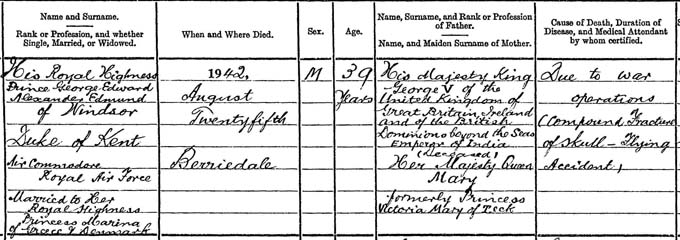 Name and Surname.
Rank or Profession, and whether
Single, Married, or Widowed.
When and Where Died.
Sex.
Age.
Name, Surname, and Rank or Profession
of Father.
Name, and Maiden Surname of Mother.
Cause of Death, Duration of
Disease, and Medical Attendant
by whom certified.
His Royal Highness
Prince George Edward
Alexander Edmund
of Windsor
Duke of Kent
Air Commodore
Royal Air Force
Married to Her
Royal Highness
Princess Marina
of Greece & Denmark
1942,
August
Twentyfifth
Berriedale
M
39
Years
His Majesty King
George V of the
United Kingdom of
Great Britain, Ireland
and of the British
Dominions beyond the Seas
Emperor of India
(deceased)
Her Majesty Queen
Mary
formerly Princess
Victoria Mary of Teck
Due to war
operations
(Compound Fracture
of Skull – Flying
Accident)